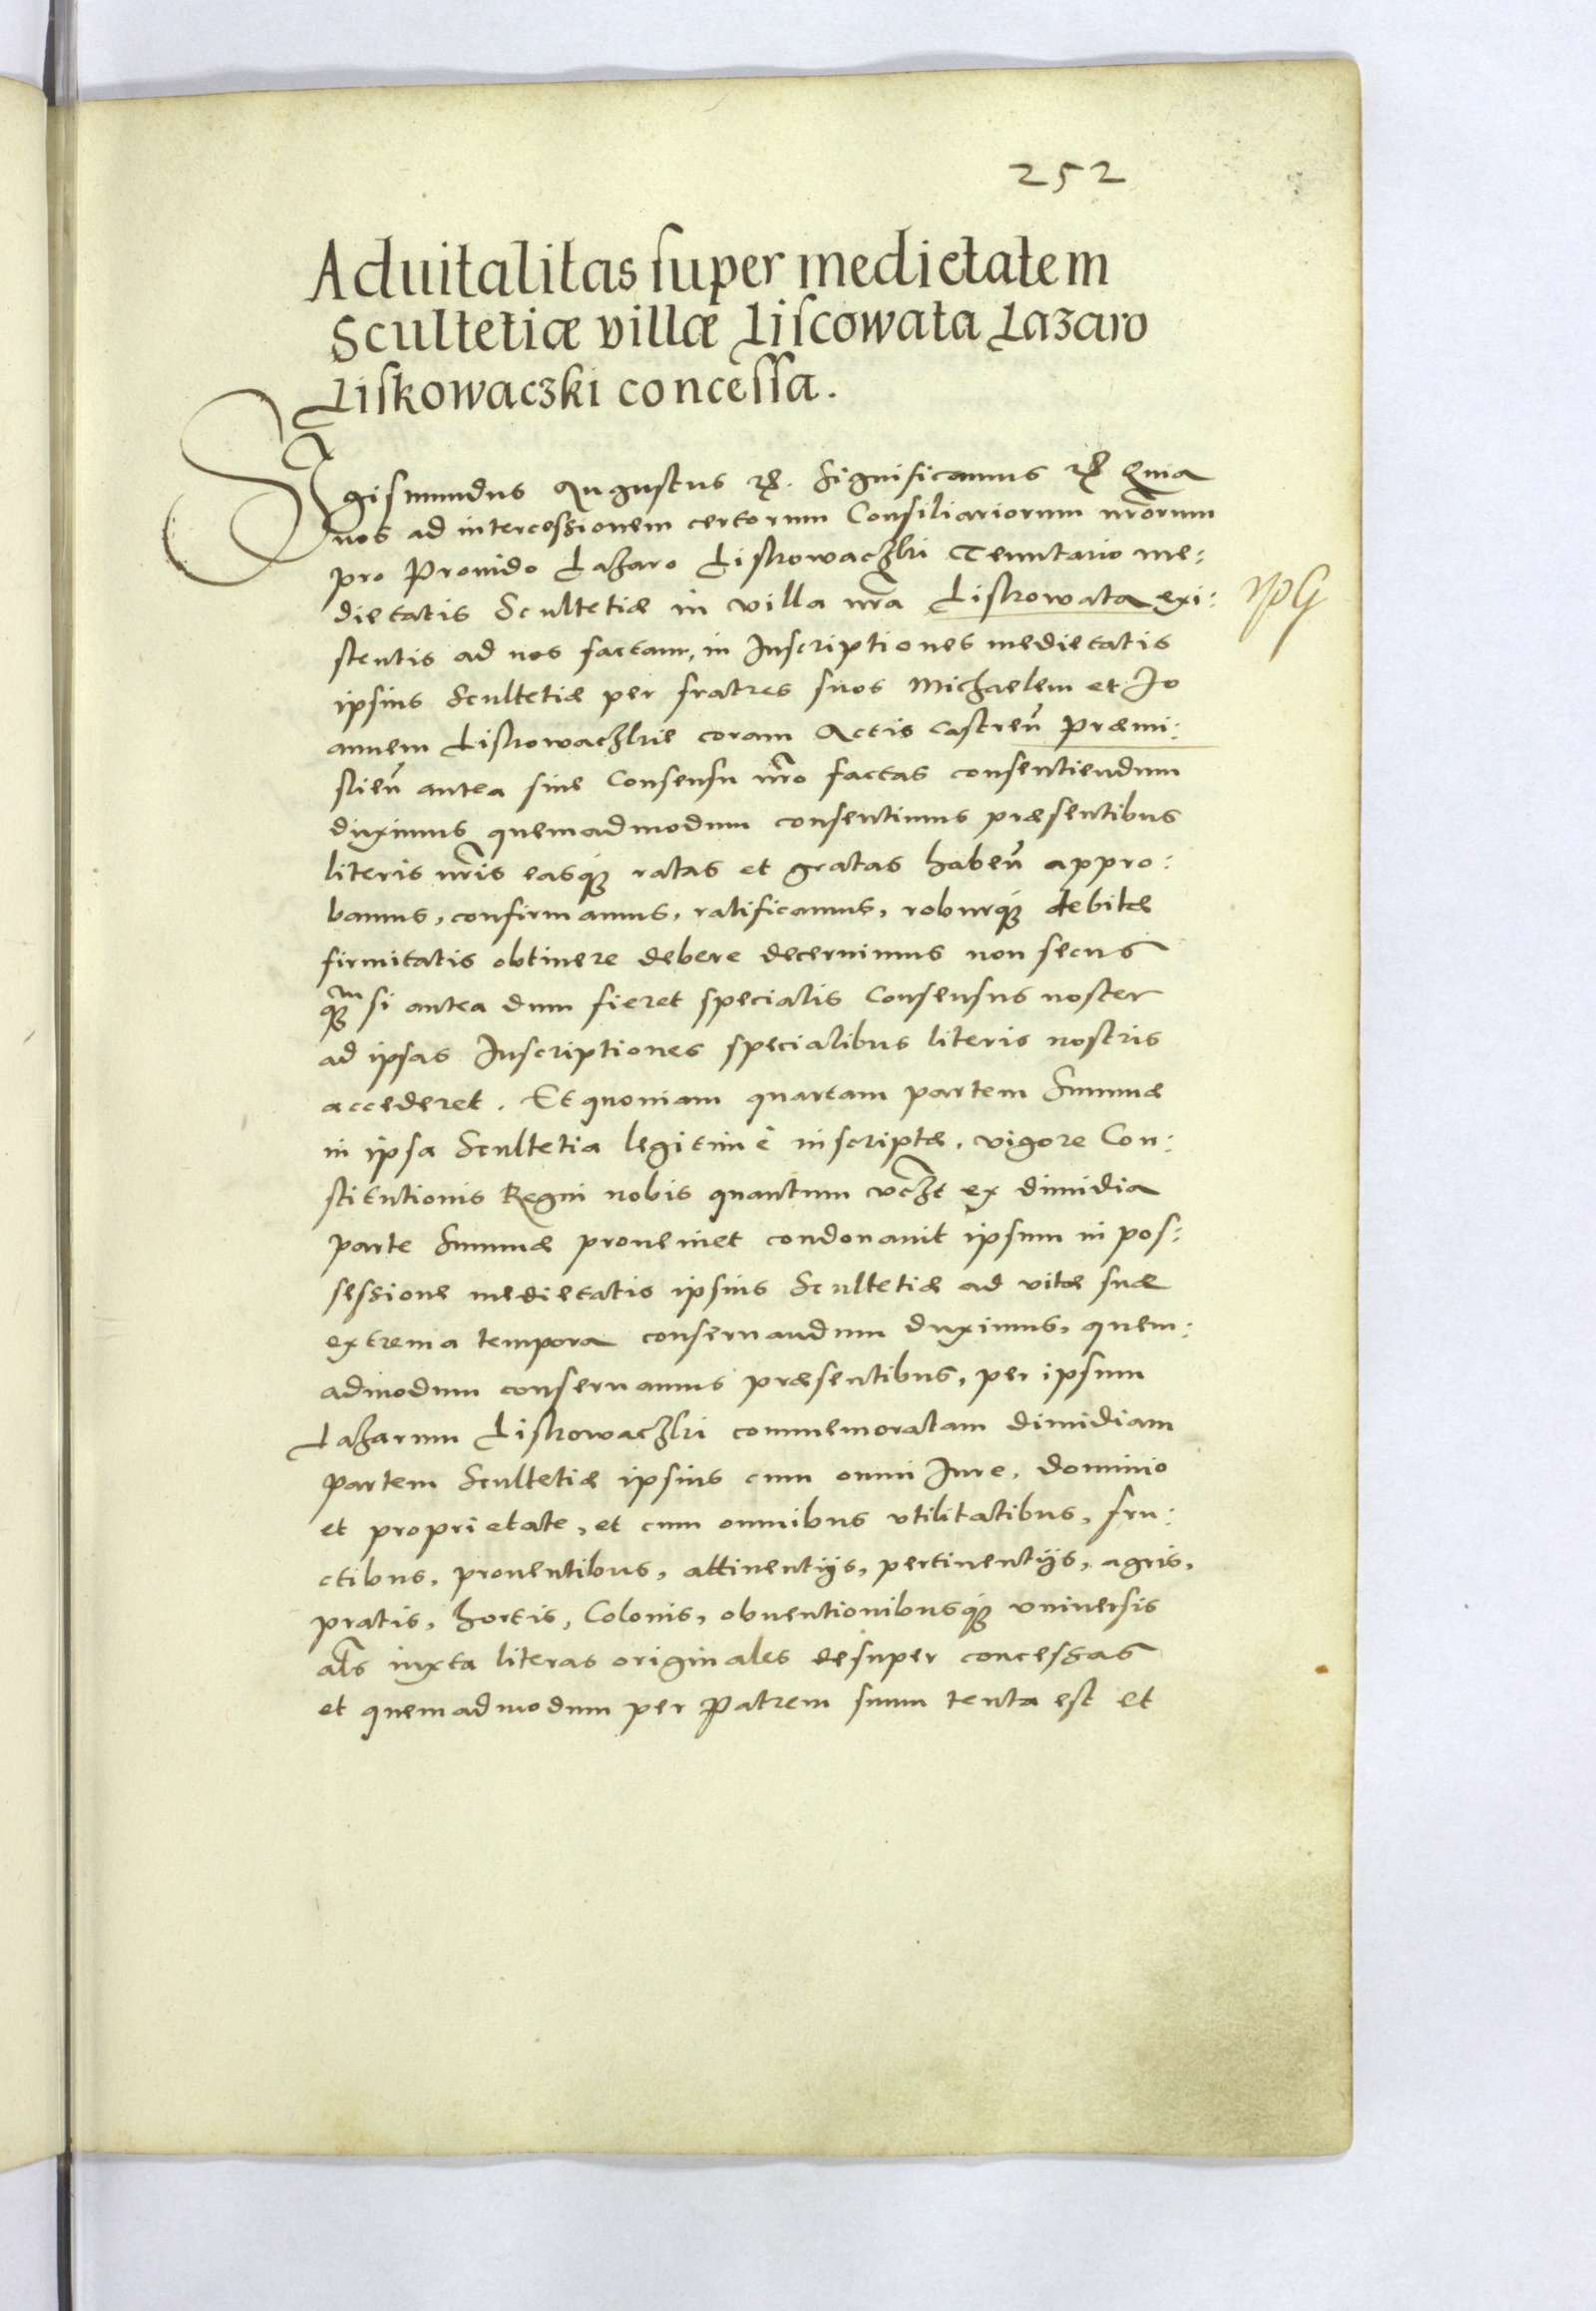 252
Aduitalitas super medietatem
Scultetiæ villæ Liscowata Lazaro
Liskowaczki concessa.
Sigismundus Augustus &c. Significamus &c Quia
nos ad intercessionem certorum Consiliariorum nr̃orum
pro Prouido Lazaro Liskowaczki Tenutario me:
dietatis Scultetiæ in villa nr̃a Liskowata exi:
stentis ad nos factam, in Inscriptiones medietatis
ipsius Scultetiæ per fratres suos Michaelem et Jo
annem Liskowaczkie coram Actis castreñ Præmi:
slieñ antea sine Consensu nr̃o factas consentiendum
duximus quemadmodum consentimus præsentibus
literis nr̃is easq́ꝫ ratas et gratas habeñ appro:
bamus, confirmamus, ratificamus, roburq́ꝫ debitæ
firmitatis obtinere debere decernimus non secus
qꝫm si antea dum fieret specialis Consensus noster
ad ipsas Inscriptiones specialibus literis nostris
accederet. Et quoniam quartam partem Summæ
in ipsa Scultetia legitimè inscriptæ, vigore Con:
stitutionis Regni nobis quantum vczt ex dimidia
parte Summæ proueniet condonauit ipsum in pos:
sessione medietatis ipsius Scultetiæ ad vitæ suæ
extrema tempora conseruandum duximus, quem:
admodum conseruamus præsentibus, per ipsum
Lazarum Liskowaczki commemoratam dimidiam
partem Scultetiæ ipsius cum omni Iure, dominio
et proprietate, et cum omnibus vtilitatibus, fru:
ctibus, prouentibus, attinentijs, pertinentijs, agris,
pratis, hortis, Colonis, obuentionibusq́ꝫ vniuersis
al̃s iuxta literas originales desuper concessas
et quemadmodum per Patrem suum tenta est et